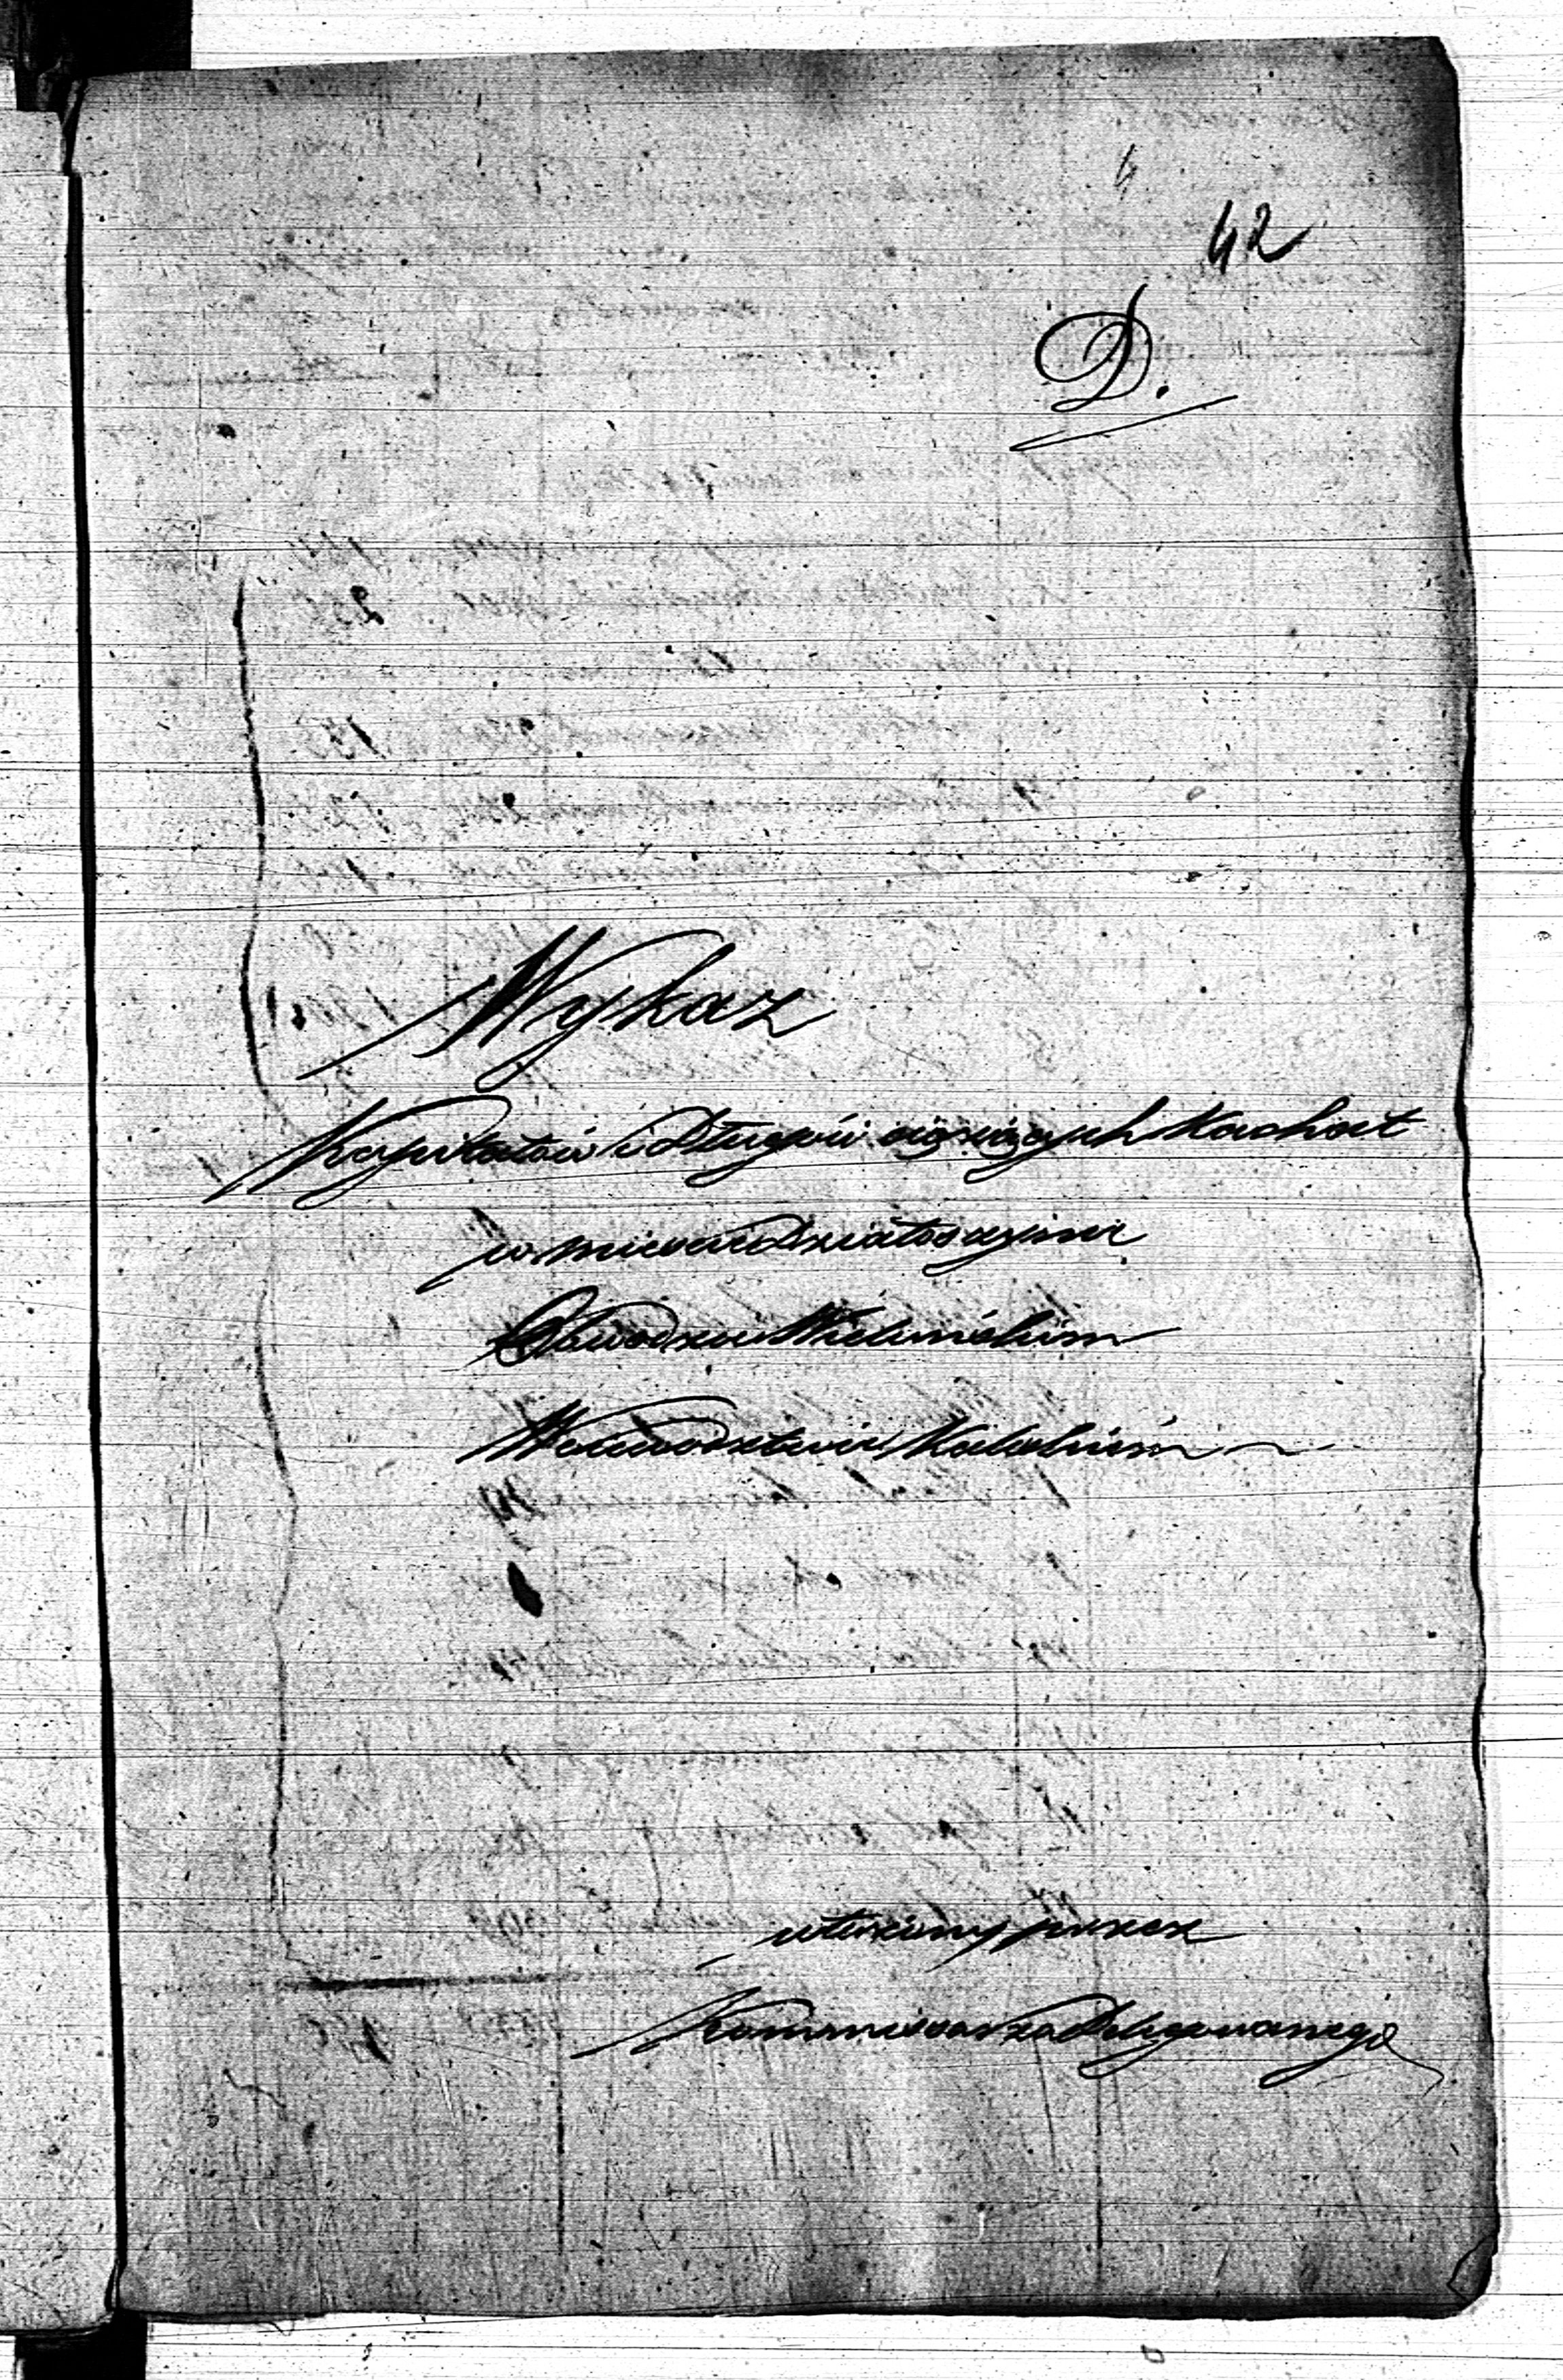 42
D.
Wykaz
Kapitałów i Długów ciążących Kachał
w mieście Działoszynie
Obwodzie Wieluńskim
Wojewodztwie Kaliskim
ułożony przez
Kommissarza Delegowanego